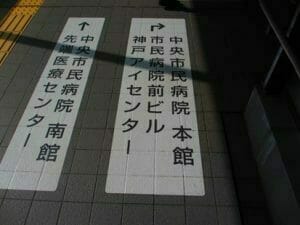 ↱中央市民病院 本館
市民病院前ビル
神戸アイセンター
↑中央市民病院 南館
先端医療センター